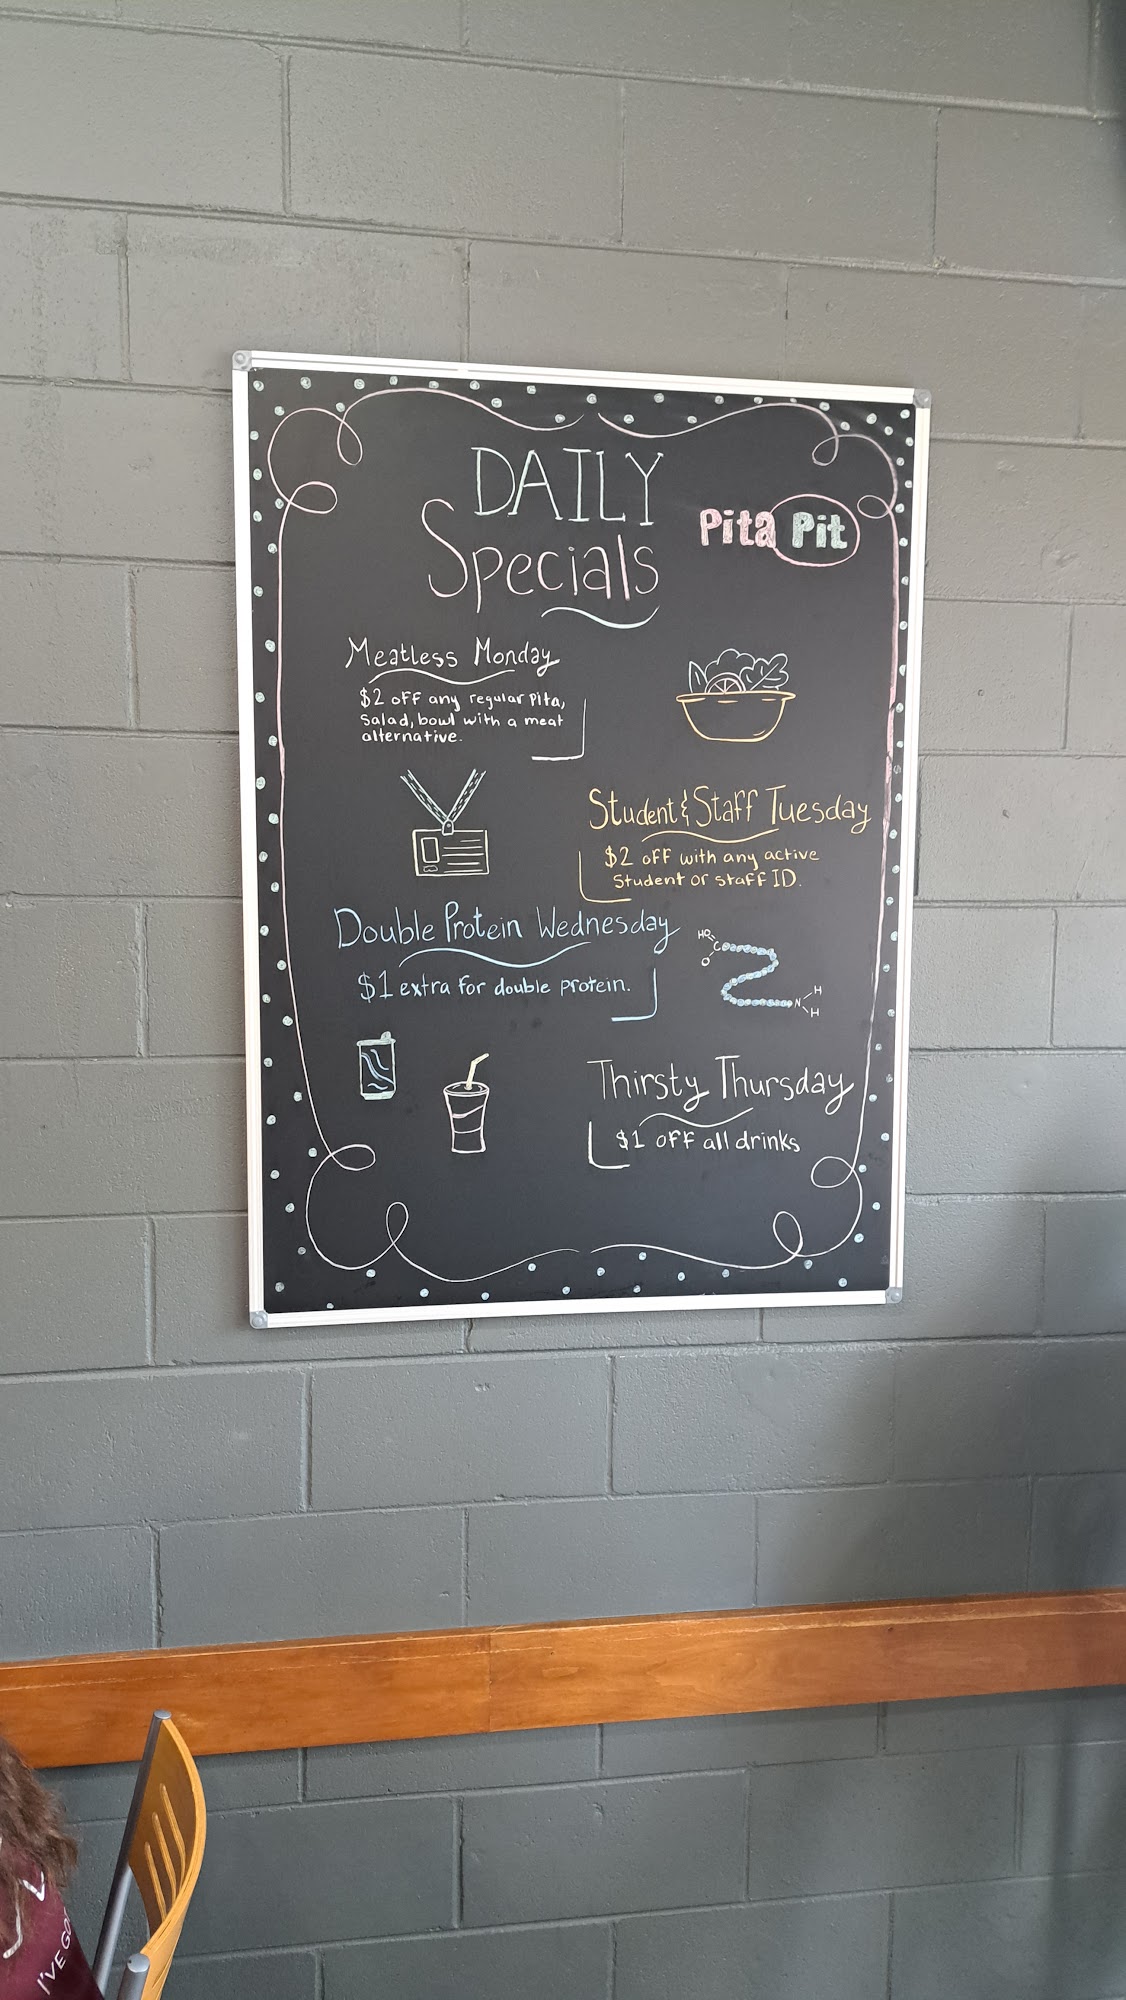 DAILY
Specials
Pita Pit
Meatless Monday
$2 off any regular Pita,
Salad, bowl with a meat
alternative.
Student & Staff Tuesday
$2 off with any active
Student or staff ID.
Double Protein Wednesday
$1 extra for double protein.
HO
C
O
N
H
H
Thirsty Thursday
$1 off all drinks
I'VE GO